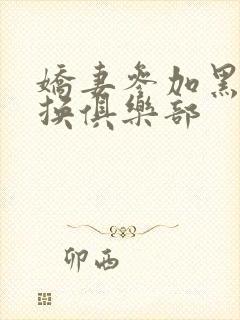 嬌妻參加黑
換俱樂部
卯酉